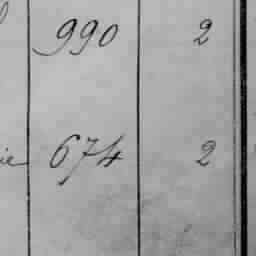 990 2
674 2